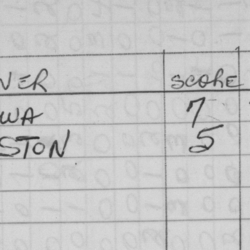 VER SCORE
WA 7
STON 5